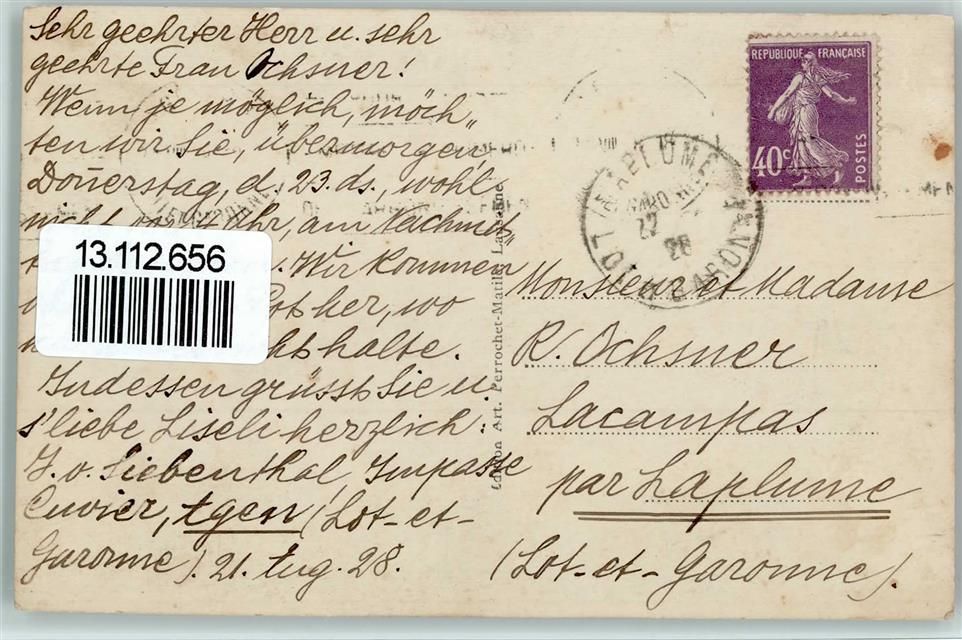 Sehr geehrter Herr u. sehr
geehrte Frau Ochsner!
Wenn je möglich, möch„
ten wir Sie, übermorgen,
Donerstag, d. 23. ds., wohl
nicht vor 4 Uhr, am Nachmit„
Wir kommen
her, wo
halte.
Indessen grüsst Sie u.
s'liebe Liseli herzlich:
J. v. Siebenthal Impasse
Cuvier, Agen (Lot-et-
Garonne). 21. Aug. 28.
13.112.656
Edition Art. Perrochet-Matile, Lausanne
REPUBLIQUE FRANÇAISE
40c
POSTES
LAPLUME
22
28
LOT-ET-GARONNE
Monsieur et Madame
R. Ochsner
Lacampas
par Laplume
(Lot-et-Garonne).